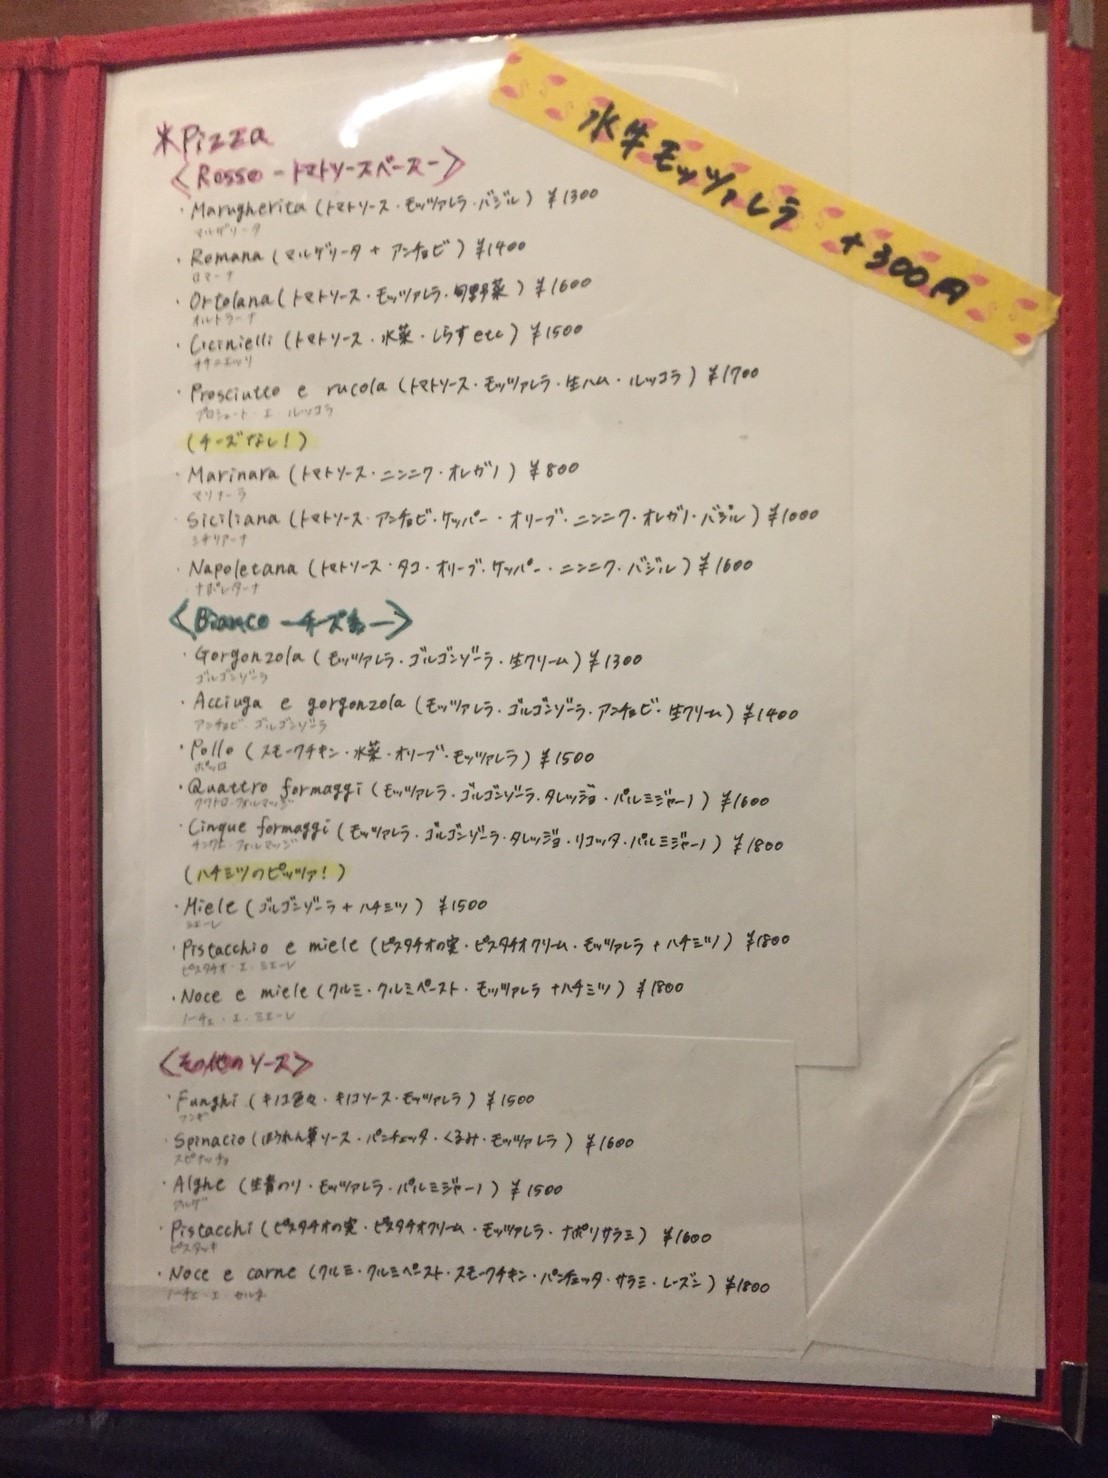 水牛モッツァレラ +300円
※Pizza
<Rosso -トマトソースベース->
・Marugherita (トマトソース・モッツァレラ・バジル) ¥1300
マルゲリータ
・Romana (マルゲリータ + アンチョビ) ¥1400
ロマーナ
・Ortolana (トマトソース・モッツァレラ・旬野菜) ¥1600
オルトラーナ
・Cicinielli (トマトソース・水菜・しらす etc) ¥1500
チチニエッリ
・Prosciutto e rucola (トマトソース・モッツァレラ・生ハム・ルッコラ) ¥1700
プロシュート・エ・ルッコラ
(チーズなし!)
・Marinara (トマトソース・ニンニク・オレガノ) ¥800
マリナーラ
・Siciliana (トマトソース・アンチョビ・ケッパー・オリーブ・ニンニク・オレガノ・バジル) ¥1000
シチリアーナ
・Napoletana (トマトソース・タコ・オリーブ・ケッパー・ニンニク・バジル) ¥1600
ナポレターナ
<Bianco -チーズ系->
・Gorgonzola (モッツァレラ・ゴルゴンゾーラ・生クリーム) ¥1300
ゴルゴンゾーラ
・Acciuga e gorgonzola (モッツァレラ・ゴルゴンゾーラ・アンチョビ・生クリーム) ¥1400
アンチョビ・ゴルゴンゾーラ
・Pollo (スモークチキン・水菜・オリーブ・モッツァレラ) ¥1500
ポッロ
・Quattro formaggi (モッツァレラ・ゴルゴンゾーラ・タレッジョ・パルミジャーノ) ¥1600
クワトロ・フォルマッジ
・Cinque formaggi (モッツァレラ・ゴルゴンゾーラ・タレッジョ・リコッタ・パルミジャーノ) ¥1800
チンクエ・フォルマッジ
(ハチミツのピッツァ!)
・Miele (ゴルゴンゾーラ + ハチミツ) ¥1500
ミエーレ
・Pistacchio e miele (ピスタチオの実・ピスタチオクリーム・モッツァレラ + ハチミツ) ¥1800
ピスタチオ・エ・ミエーレ
・Noce e miele (クルミ・クルミペースト・モッツァレラ + ハチミツ) ¥1800
ノーチェ・エ・ミエーレ
<その他のソース>
・Funghi (キノコ色々・キノコソース・モッツァレラ) ¥1500
フンギ
・Spinacio (ほうれん草ソース・パンチェッタ・くるみ・モッツァレラ) ¥1600
スピナッチョ
・Alghe (生青のり・モッツァレラ・パルミジャーノ) ¥1500
アルゲ
・Pistacchi (ピスタチオの実・ピスタチオクリーム・モッツァレラ・ナポリサラミ) ¥1600
ピスタッキ
・Noce e carne (クルミ・クルミペースト・スモークチキン・パンチェッタ・サラミ・レーズン) ¥1800
ノーチェ・エ・カルネ